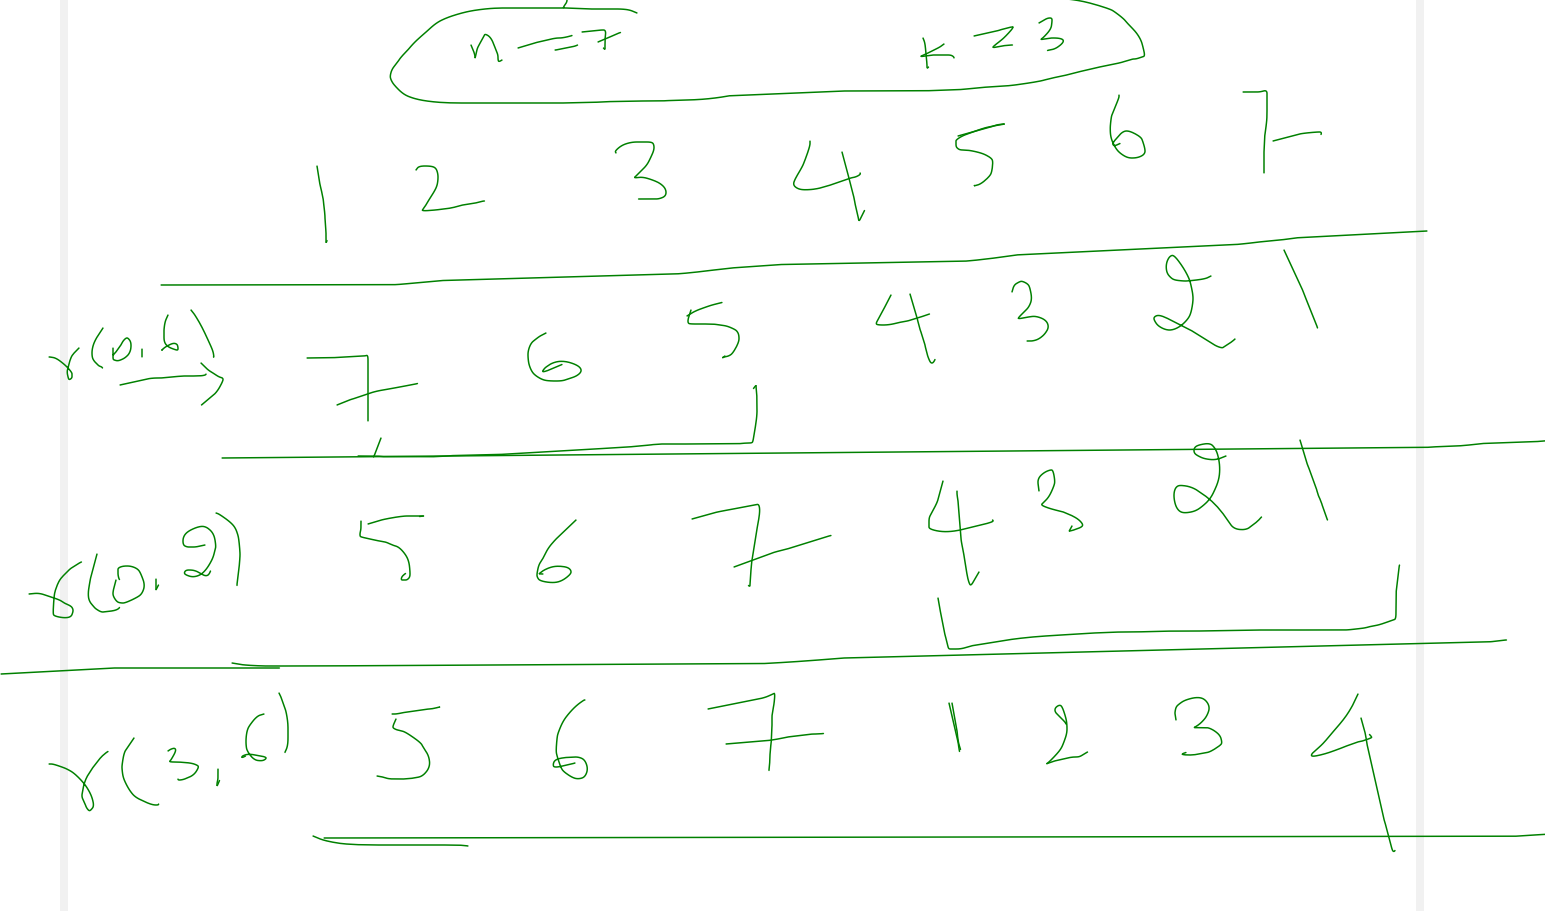 n = 7 k = 3
1 2 3 4 5 6 7
r(0,6) 7 6 5 4 3 2 1
r(0,2) 5 6 7 4 3 2 1
r(3,6) 5 6 7 1 2 3 4